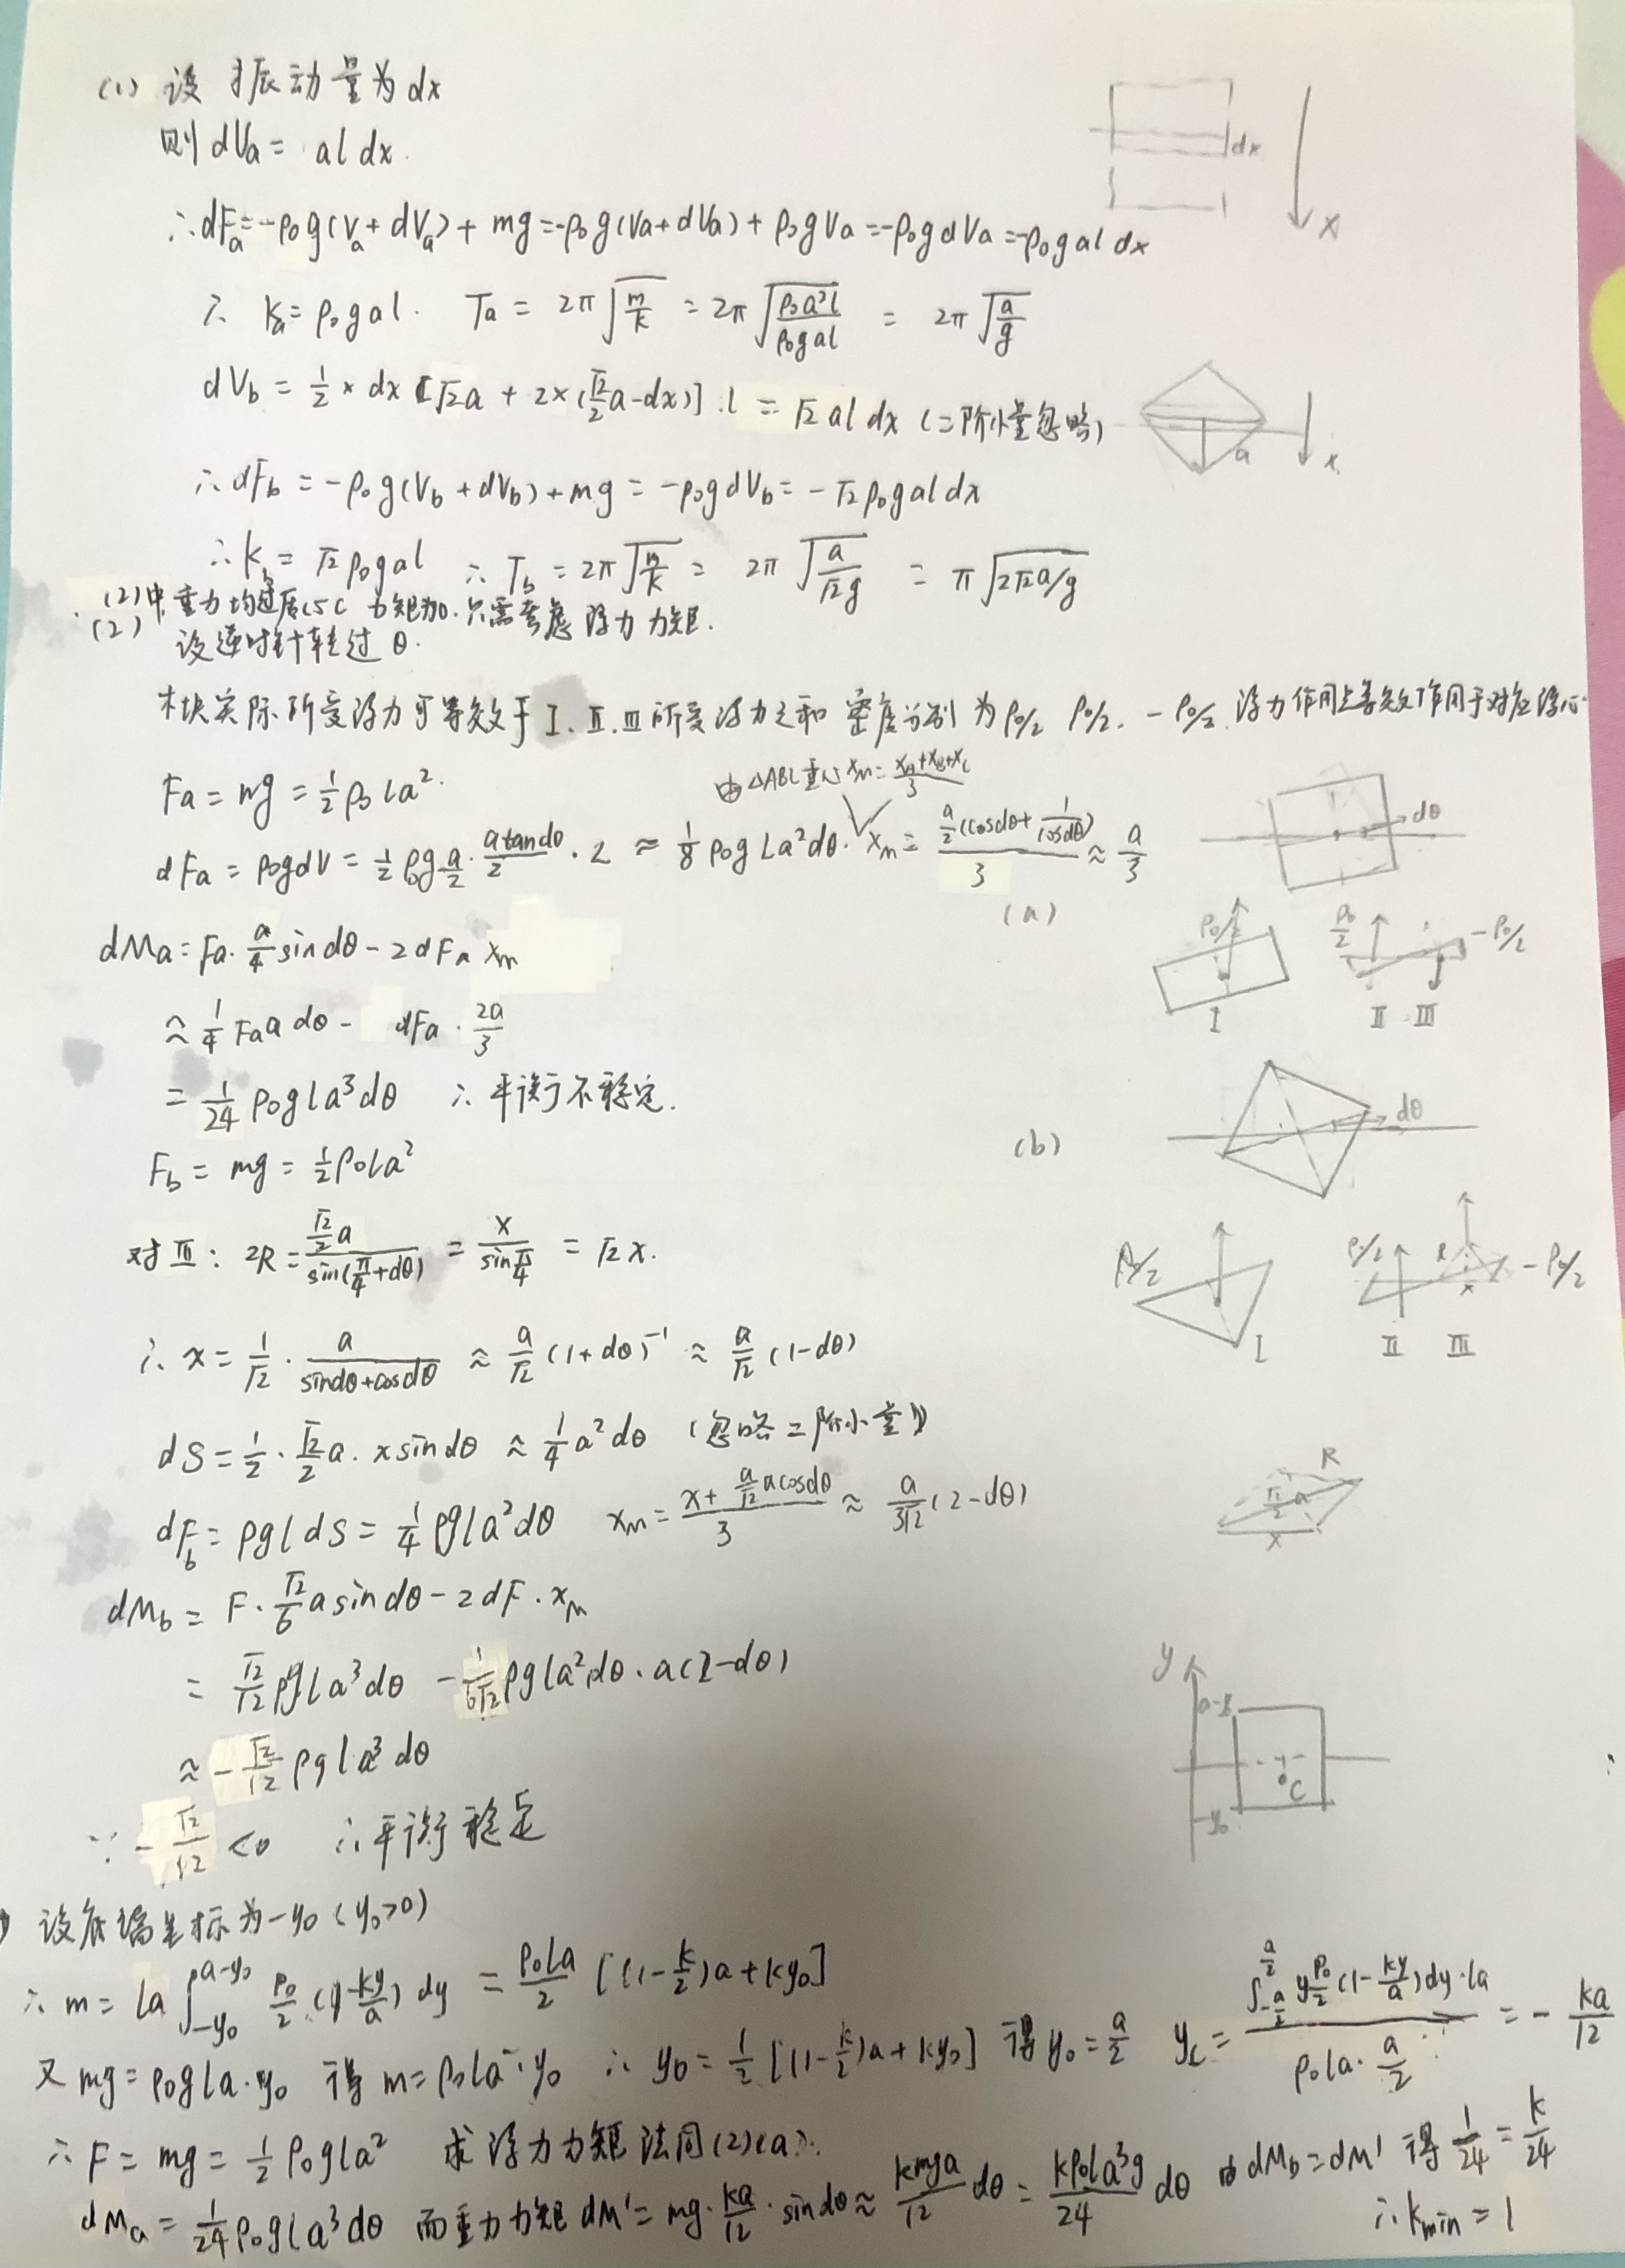 (1) 设 振动量为 dx
则 dVa = al dx.
dx
x
∴ dFa = -ρ₀g(Va + dVa) + mg = -ρ₀g(Va+dVa) + ρ₀gVa = -ρ₀g dVa = -ρ₀g al dx
∴ ka = ρ₀gal. Ta = 2π√(m/k) = 2π√(ρ₀a²l/ρ₀gal) = 2π√(a/g)
dVb = 1/2 × dx [√2a + 2×(√2/2 a - dx)] · l = √2 al dx (二阶小量忽略)
a
x
∴ dFb = -ρ₀g(Vb + dVb) + mg = -ρ₀g dVb = -√2 ρ₀g al dx
∴ kb = √2 ρ₀gal ∴ Tb = 2π√(m/k) = 2π√(a/√2g) = π√(2√2a/g)
(2)中重力均过质心C 力矩为0. 只需考虑 浮力 力矩.
(2) 设逆时针转过 θ.
木块实际所受浮力可等效于 I. II. III 所受浮力之和 密度分别为 ρ₀/2 ρ₀/2. -ρ₀/2. 浮力作用点等效作用于对应浮心.
Fa = mg = 1/2 ρ₀ la².
由△ABC重心 xm = (xA+xB+xC)/3
dFa = ρ₀gdV = 1/2 ρ₀g a/2 · (a tan dθ)/2 · L ≈ 1/8 ρ₀g La²dθ. xm = (a/2 (cosdθ + 1/cosdθ))/3 ≈ a/3
dθ
(a)
dMa = Fa · a/4 sin dθ - 2 dFa xm
ρ₀/2
I
ρ₀/2
-ρ₀/2
II III
≈ 1/4 Fa a dθ - dFa · 2a/3
= 1/24 ρ₀gla³dθ ∴ 平衡不稳定.
(b)
dθ
Fb = mg = 1/2 ρ₀la²
对 III: 2R = (√2/2 a)/sin(π/4+dθ) = x/sin π/4 = √2 x.
ρ₀/2
I
ρ/2
R
x
-ρ₀/2
II III
∴ x = 1/√2 · a/(sindθ+cosdθ) ≈ a/√2 (1+dθ)⁻¹ ≈ a/√2 (1-dθ)
dS = 1/2 · √2/2 a · x sin dθ ≈ 1/4 a²dθ (忽略二阶小量)
R
√2/2 a
x
dFb = ρgl dS = 1/4 ρgla²dθ xm = (x + a/√2 a cosdθ)/3 ≈ a/3√2 (2-dθ)
dMb = F · √2/6 a sin dθ - 2 dF · xm
= √2/12 ρgla³dθ - 1/6√2 ρgla²dθ · a(2-dθ)
≈ -√2/12 ρgla³dθ
∵ -√2/12 < 0 ∴ 平衡稳定
y
C
-y₀
设底端坐标为 -y₀ (y₀>0)
∴ m = la ∫_{-y₀}^{a-y₀} ρ₀/2 (1-ky/a) dy = ρ₀la/2 [(1-k/2)a + ky₀]
又 mg = ρ₀gla·y₀ 得 m = ρ₀la·y₀ ∴ y₀ = 1/2 [(1-k/2)a + ky₀] 得 y₀ = a/2 yc = (∫_{-a/2}^{a/2} y ρ₀/2 (1-ky/a)dy·la)/(ρ₀la·a/2) = -ka/12
∴ F = mg = 1/2 ρ₀gla² 求浮力力矩法同(2)(a).
dMa = 1/24 ρ₀gla³dθ 而重力力矩 dM' = mg·ka/12·sin dθ ≈ kmga/12 dθ = kρ₀la³g/24 dθ 由 dMb = dM' 得 1/24 = k/24
∴ kmin = 1